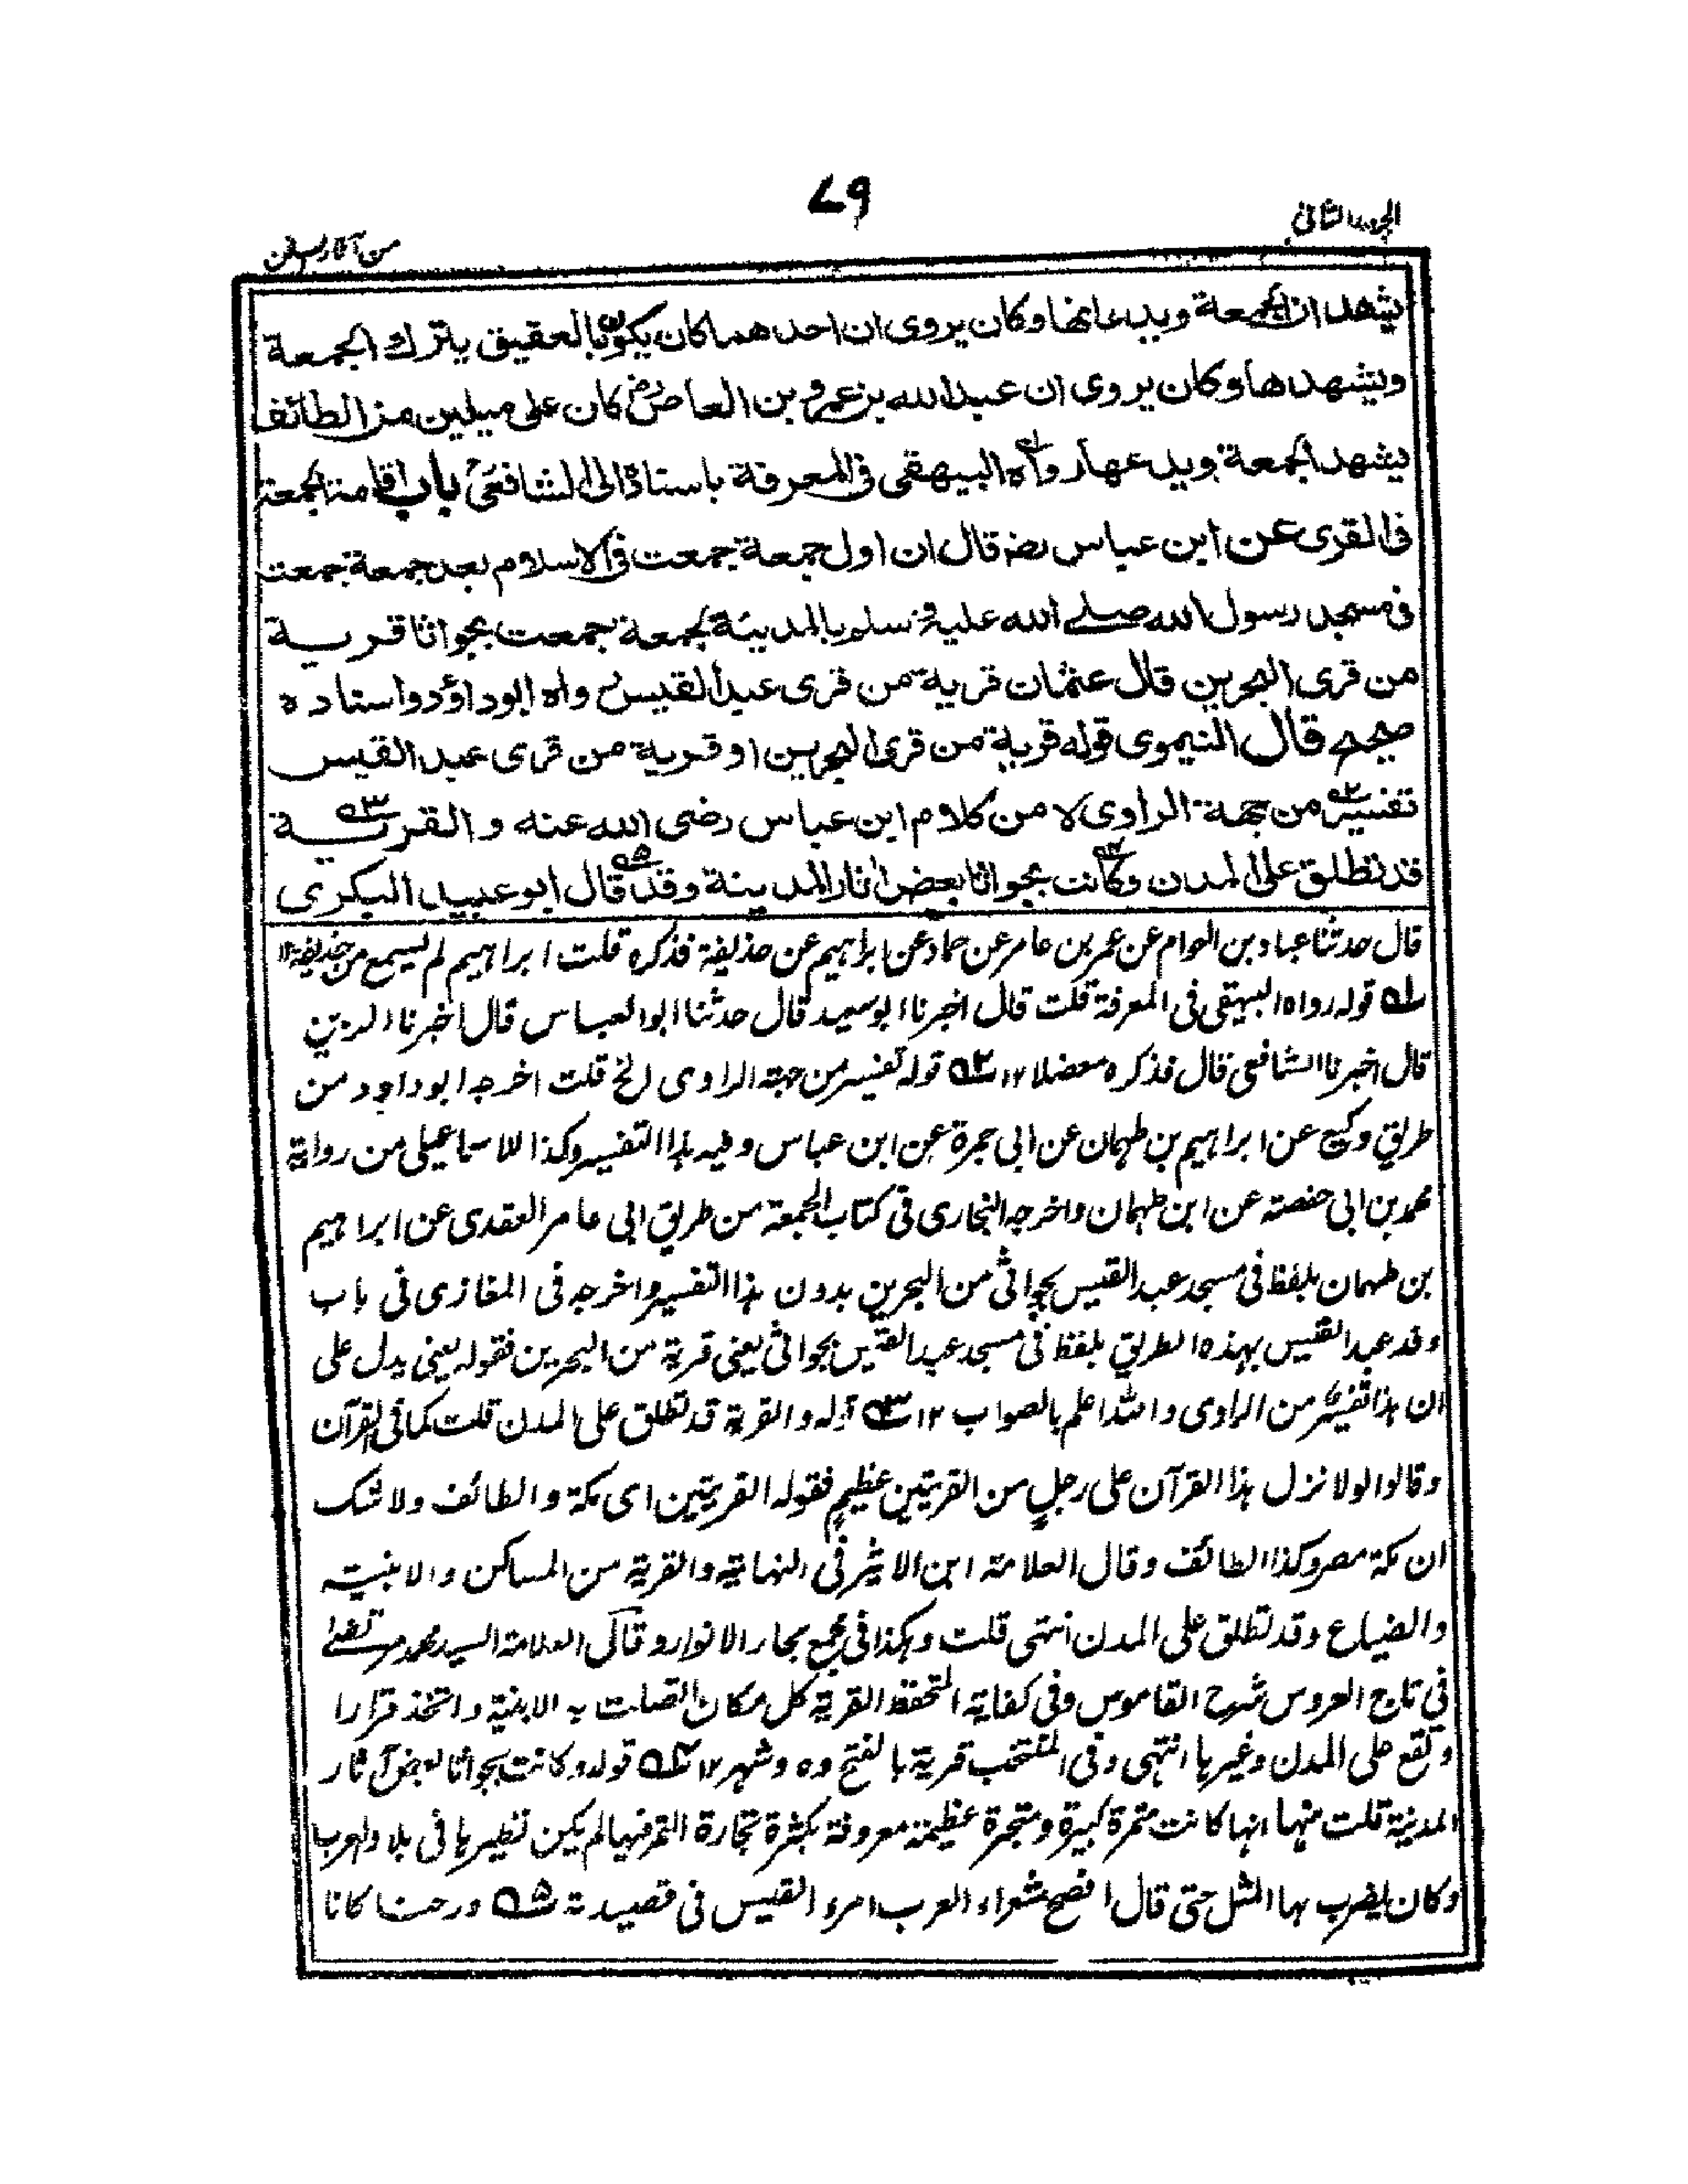 ٧٩
الجزء الثاني
من آثار السنن
يشهدان الجمعة ويدعانها وكان يروى ان احدهما كان يكون بالعقيق يترك الجمعة
ويشهدها وكان يروى ان عبد الله بن عمرو بن العاص رض كان على ميلين من الطائف
يشهد الجمعة ويدعها رواه البيهقى فى المعرفة باسناده الى الشافعى باب اقامة الجمعة
فى القرى عن ابن عباس رضـ قال ان اول جمعة جمعت فى الاسلام بعد جمعة جمعت
فى مسجد رسول الله صلے الله عليه وسلم بالمدينة لجمعة جمعت بجواثا قرية
من قرى البحرين قال عثمان قرية من قرى عبد القيس رواه ابو داؤد واسناده
صحيح قال النيموى قوله قرية من قرى البحرين او قرية من قرى عبد القيس
تفسير من جهة الراوى لا من كلام ابن عباس رضى الله عنه والقرية
قد تطلق على المدن وكانت بجواثا بعض اثار المدينة وقد قال ابو عبيد البكرى
قال حدثنا عباد بن العوام عن عمر بن عامر عن حماد عن ابراهيم عن حذيفة فذكره قلت ابراهيم لم يسمع من حذيفة ١٢
١ قوله رواه البيهقى فى المعرفة قلت قال اخبرنا ابو سعيد قال حدثنا ابو العباس قال اخبرنا الربيع
قال اخبرنا الشافعى قال فذكره معضلا ١٢ ٢ قوله تفسير من جهة الراوى الخ قلت اخرجه ابو داود من
طريق وكيع عن ابراهيم بن طهمان عن ابى جمرة عن ابن عباس وفيه هذا التفسير وكذا للاسماعيلى من رواية
محمد بن ابى حفصة عن ابن طهمان واخرجه البخارى فى كتاب الجمعة من طريق ابى عامر العقدى عن ابراهيم
بن طهمان بلفظ فى مسجد عبد القيس بجواثى من البحرين بدون هذا التفسير واخرجه فى المغازى فى باب
وفد عبد القيس بهذه الطريق بلفظ فى مسجد عبد القيس بجواثى يعنى قرية من البحرين فقوله يعنى يدل على
ان هذا تفسير من الراوى والله اعلم بالصواب ١٢ ٣ قوله والقرية قد تطلق على المدن قلت كما فى القرآن
وقالوا لولا نزل هذا القرآن على رجلٍ من القريتين عظيمٍ فقوله القريتين اى مكة والطائف ولا شك
ان مكة مصر وكذا الطائف وقال العلامة ابن الاثير فى النهاية والقرية من المساكن والابنية
والضياع وقد تطلق على المدن انتهى قلت وهكذا فى مجمع بحار الانوار وقال العلامة السيد محمد مرتضى
فى تاج العروس شرح القاموس وفى كفاية المتحفظ القرية كل مكان اتصلت به الابنية واتخذ قرارا
وتقع على المدن وغيرها انتهى وفى المنتخب قرية بالفتح ده وشهر ١٢ ٤ قوله وكانت بجواثا بعض آثار
المدينة قلت منها انها كانت متمرة كبيرة ومتجرة عظيمة معروفة بكثرة تجارة التمر فيها لم يكن نظيرها فى بلاد العرب
وكان يضرب بها المثل حتى قال افصح شعراء العرب امرء القيس فى قصيدته ٥ ورحنا كانا